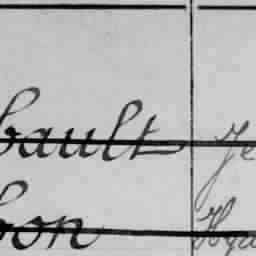 bault Je
bon Hya